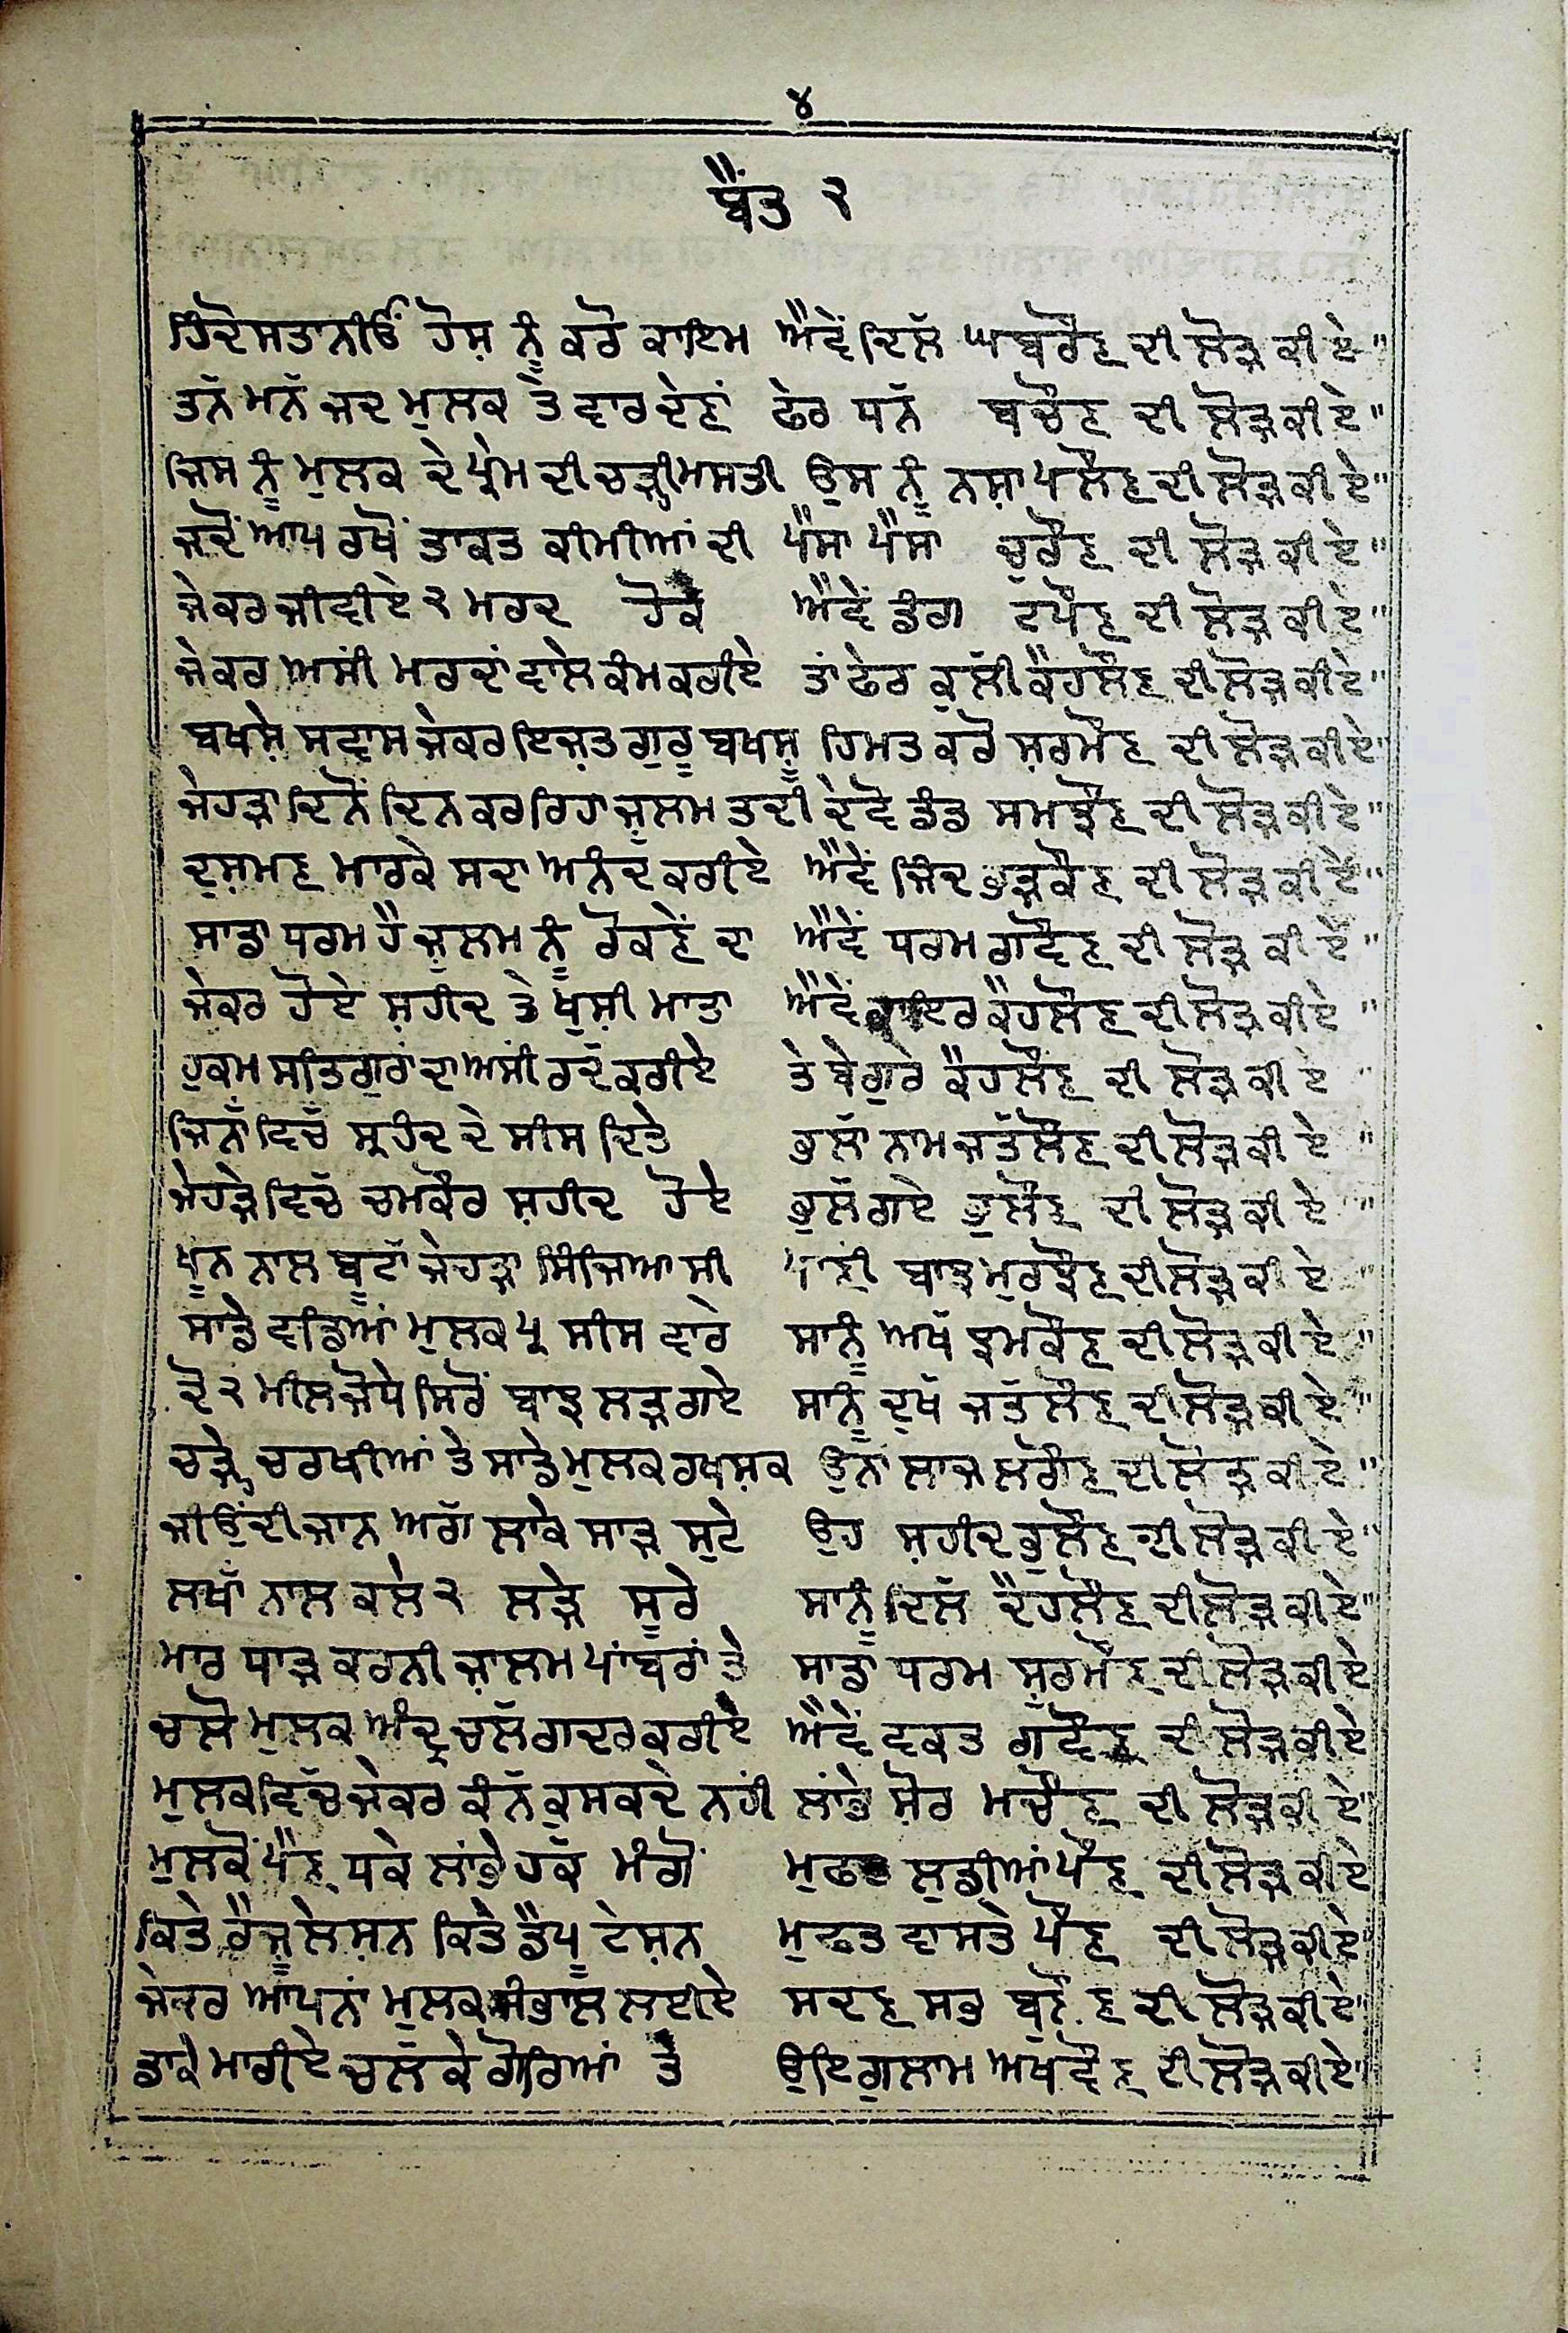 ੪
ਬੈਂਤ ੨
ਹਿੰਦੋਸਤਾਨੀਓਂ ਹੋਸ਼ ਨੂੰ ਕਰੋ ਕਾਇਮ ਐਵੇਂ ਦਿਲੱ ਘਬਰੌਣ ਦੀ ਲੋੜ ਕੀ ਏ"
ਤਨੱ ਮਨੱ ਜਦ ਮੁਲਕ ਤੇ ਵਾਰ ਦੇਣਾਂ ਫੇਰ ਧਨੱ ਬਚੌਣ ਦੀ ਲੋੜ ਕੀ ਏ"
ਜਿਸ ਨੂੰ ਮੁਲਕ ਦੇ ਪ੍ਰੇਮ ਦੀ ਚੜ੍ਹੀ ਮਸਤੀ ਉਸ ਨੂੰ ਨਸ਼ਾ ਪਲੌਣ ਦੀ ਲੋੜ ਕੀ ਏ"
ਜਦੋਂ ਆਪ ਰਖੋਂ ਤਾਕਤ ਕੀਮੀਆਂ ਦੀ ਪੈਸਾ ਪੈਸਾ ਚੁਰੌਣ ਦੀ ਲੋੜ ਕੀ ਏ"
ਜੇਕਰ ਜੀਵੀਏ ੨ ਮਰਦ ਹੋਕੇ ਐਵੇਂ ਡੰਗ ਟਪੌਣ ਦੀ ਲੋੜ ਕੀ ਏ"
ਜੇਕਰ ਅਸੀਂ ਮਰਦਾਂ ਵਾਲੇ ਕੰਮ ਕਰੀਏ ਤਾਂ ਫੇਰ ਕੁਲੀ ਕੈਹਲੌਣ ਦੀ ਲੋੜ ਕੀ ਏ"
ਬਖਸ਼ੇ ਸਵਾਸ ਜੇਕਰ ਇਜ਼ਤ ਗੁਰੂ ਬਖਸ਼ੂ ਹਿਮਤ ਕਰੋ ਸ਼ਰਮੌਣ ਦੀ ਲੋੜ ਕੀ ਏ"
ਜੇਹੜਾ ਦਿਨੋਂ ਦਿਨ ਕਰ ਰਿਹਾ ਜ਼ੁਲਮ ਤਦੀ ਦੇਵੋ ਡੰਡ ਸਮਝੌਣ ਦੀ ਲੋੜ ਕੀ ਏ"
ਦੁਸ਼ਮਣ ਮਾਰਕੇ ਸਦਾ ਅਨੰਦ ਕਰੀਏ ਐਵੇਂ ਜਿੰਦ ਭੁੜਕੌਣ ਦੀ ਲੋੜ ਕੀ ਏ"
ਸਾਡਾ ਧਰਮ ਹੈ ਜ਼ੁਲਮ ਨੂੰ ਰੋਕਣੇਂ ਦਾ ਐਵੇਂ ਧਰਮ ਗਵੌਣ ਦੀ ਲੋੜ ਕੀ ਏ"
ਜੇਕਰ ਹੋਏ ਸ਼ਹੀਦ ਤੇ ਖੁਸ਼ੀ ਮਾਤਾ ਐਵੇਂ ਕਾਇਰ ਕੈਹਲੌਣ ਦੀ ਲੋੜ ਕੀ ਏ"
ਹੁਕਮ ਸਤਿਗੁਰਾਂ ਦਾ ਅਸੀਂ ਰਦੱ ਕਰੀਏ ਤੇ ਬੇਗੁਰੇ ਕੈਹਲੌਣ ਦੀ ਲੋੜ ਕੀ ਏ "
ਜਿਨ੍ਹਾਂ ਵਿਚੱ ਸ੍ਰਹੰਦ ਦੇ ਸੀਸ ਦਿਤੇ ਭੁਲਾਂ ਨਾਮ ਜਤੱਲੌਣ ਦੀ ਲੋੜ ਕੀ ਏ "
ਜੇਹੜੇ ਵਿਚੱ ਚਮਕੌਰ ਸ਼ਹੀਦ ਹੋਏ ਭੁਲੱ ਗਏ ਭੁਲੌਣ ਦੀ ਲੋੜ ਕੀ ਏ "
ਖੂਨ ਨਾਲ ਬੂਟਾ ਜੇਹੜਾ ਸਿੰਜਿਆ ਸੀ ਪਾਣੀ ਬਾਝ ਮੁਰਝੌਣ ਦੀ ਲੋੜ ਕੀ ਏ "
ਸਾਡੇ ਵਡਿਆਂ ਮੁਲਕ ਪ੍ਰ ਸੀਸ ਵਾਰੇ ਸਾਨੂੰ ਅਖੱ ਝਮਕੌਣ ਦੀ ਲੋੜ ਕੀ ਏ "
ਦੋ ੨ ਮੀਲ ਜੋਧੇ ਸਿਰੋਂ ਬਾਝ ਲੜ ਗਏ ਸਾਨੂੰ ਦੁਖੱ ਜਤੱਲੌਣ ਦੀ ਲੋੜ ਕੀ ਏ"
ਚੜ੍ਹੇ ਚਰਖੀਆਂ ਤੇ ਸਾਡੇ ਮੁਲਕ ਰਖਸ਼ਕ ਉਨਾਂ ਲਾਜ ਲਗੌਣ ਦੀ ਲੋੜ ਕੀ ਏ"
ਜੀਉਂਦੀ ਜਾਨ ਅਗੱ ਲਾਕੇ ਸਾੜ ਸੁਟੇ ਉਹ ਸ਼ਹੀਦ ਭੁਲੌਣ ਦੀ ਲੋੜ ਕੀ ਏ"
ਲਖਾਂ ਨਾਲ ਕਲੇ ੨ ਲੜੇ ਸੂਰੇ ਸਾਨੂੰ ਦਿਲੱ ਦੈਹਲੌਣ ਦੀ ਲੋੜ ਕੀ ਏ"
ਮਾਰ ਧਾੜ ਕਰਨੀ ਜ਼ਾਲਮ ਪਾਂਬਰਾਂ ਤੇ ਸਾਡਾ ਧਰਮ ਸ਼ਰਮੌਣ ਦੀ ਲੋੜ ਕੀ ਏ
ਚਲੋ ਮੁਲਕ ਅੰਦ੍ਰ ਚਲੱ ਗਦਰ ਕਰੀਏ ਐਵੇਂ ਵਕਤ ਗਵੌਣ ਦੀ ਲੋੜ ਕੀ ਏ
ਮੁਲਕ ਵਿਚੱ ਜੇਕਰ ਕੰਨੱ ਕੁਸਕਦੇ ਨਹੀਂ ਲਾਂਭੇ ਸ਼ੋਰ ਮਚੌਣ ਦੀ ਲੋੜ ਕੀ ਏ"
ਮੁਲਕੋਂ ਪੈਣ ਧਕੇ ਲਾਂਭੇ ਹਕੱ ਮੰਗੋਂ ਮੁਫਤ ਲੁਡੀਆਂ ਪੌਣ ਦੀ ਲੋੜ ਕੀ ਏ
ਕਿਤੇ ਰੈਜ਼ੂਲੇਸ਼ਨ ਕਿਤੇ ਡੈਪੂਟੇਸ਼ਨ ਮੁਫਤ ਵਾਸਤੇ ਪੌਣ ਦੀ ਲੋੜ ਕੀ ਏ
ਜੇਕਰ ਆਪਨਾਂ ਮੁਲਕ ਸੰਭਾਲ ਲਈਏ ਸਦਣ ਸਭ ਬੁਲੌਣ ਦੀ ਲੋੜ ਕੀ ਏ"
ਡਾਕੇ ਮਾਰੀਏ ਚਲੱਕੇ ਗੋਰਿਆਂ ਤੇ ਉਇ ਗੁਲਾਮ ਅਖਵੌਣ ਦੀ ਲੋੜ ਕੀ ਏ"